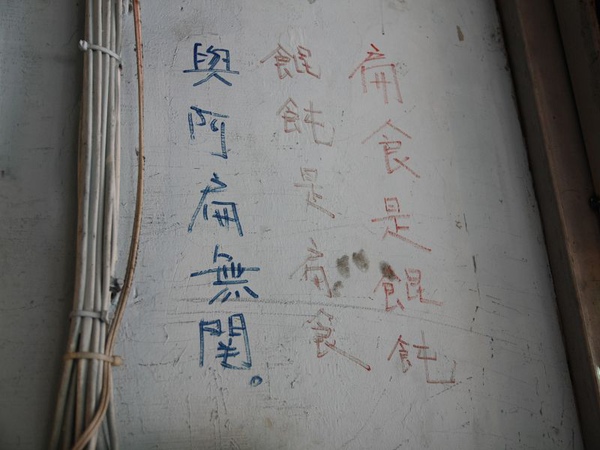 扁食是餛飩
餛飩是扁食
與阿扁無関。